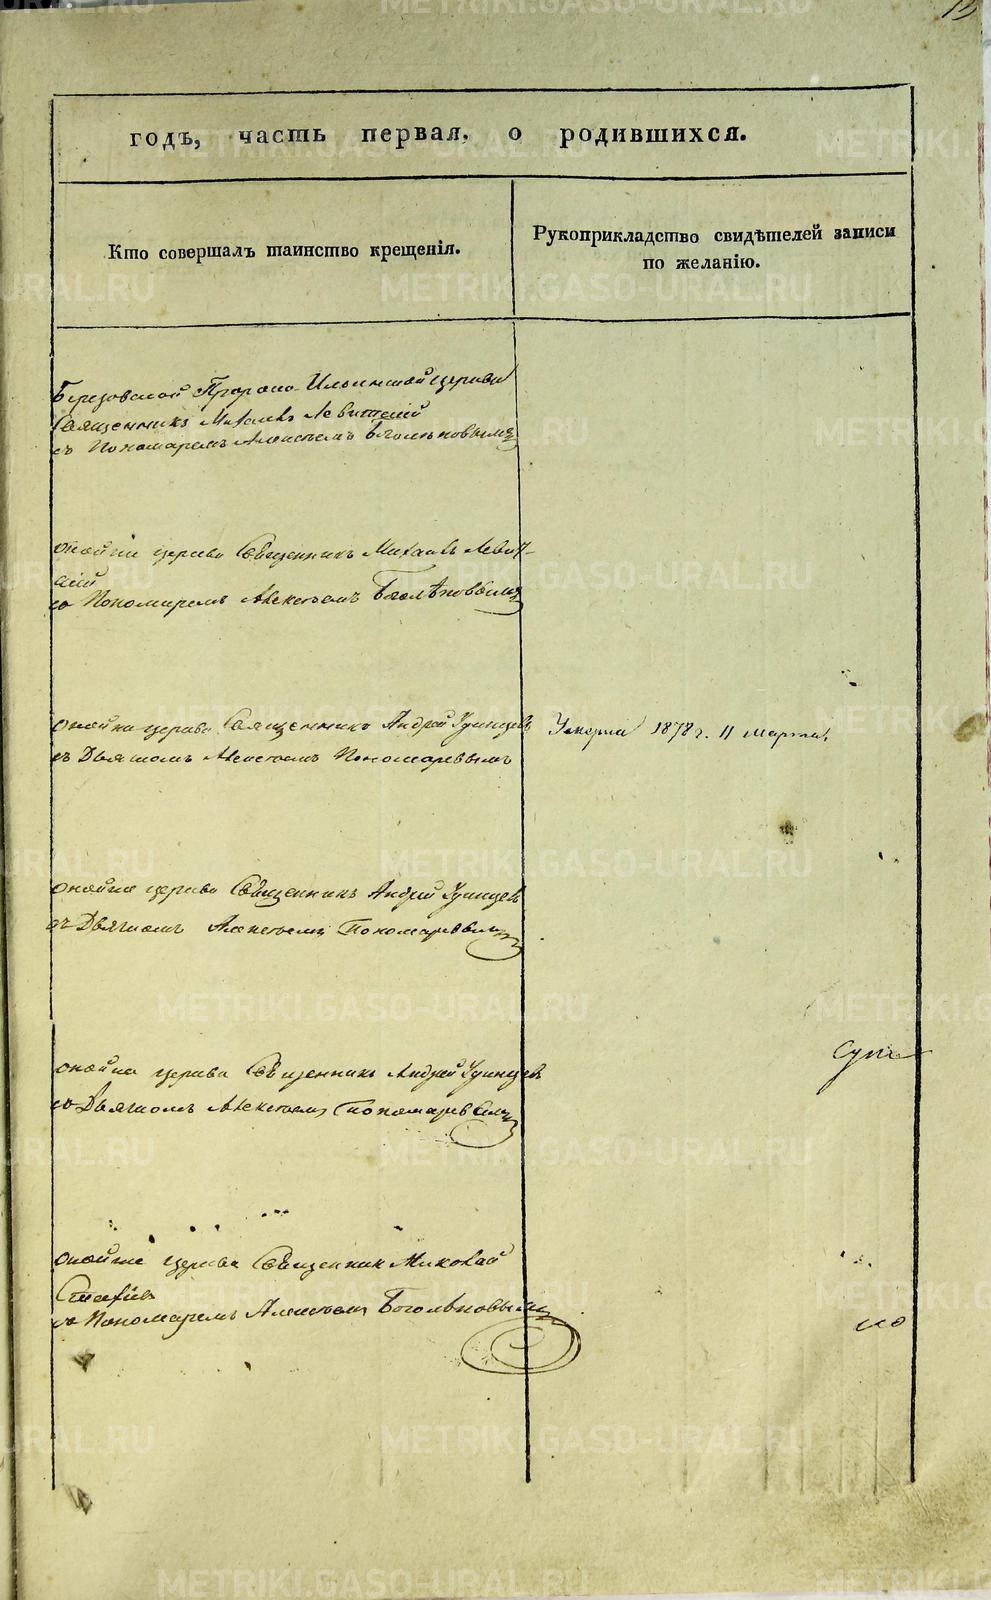 годъ, часть первая, о родившихся.
Кто совершалъ таинство крещенія.
Рукоприкладство свидѣтелей записи
по желанію.
Березовской Пророко-Ильинской церкви
Священникъ Михаилъ Левитскій
съ Пономаремъ Алексѣемъ Боголѣповымъ
оной же церкви Священникъ Михаилъ Левит-
скій
съ Пономаремъ Алексѣемъ Боголѣповымъ
оной же церкви Священникъ Андрей Удинцевъ
Умерла 1878 г. 11 Марта.
съ Дьячкомъ Алексѣемъ Пономаревымъ
оной же церкви Священникъ Андрей Удинцевъ
съ Дьячкомъ Алексѣемъ Пономаревымъ
оной же церкви Священникъ Андрей Удинцевъ
съ Дьячкомъ Алексѣемъ Пономаревымъ
оной же церкви Священник Николай
съ Пономаремъ Алексѣемъ Боголѣповымъ
METRIKI.GASO-URAL.RU